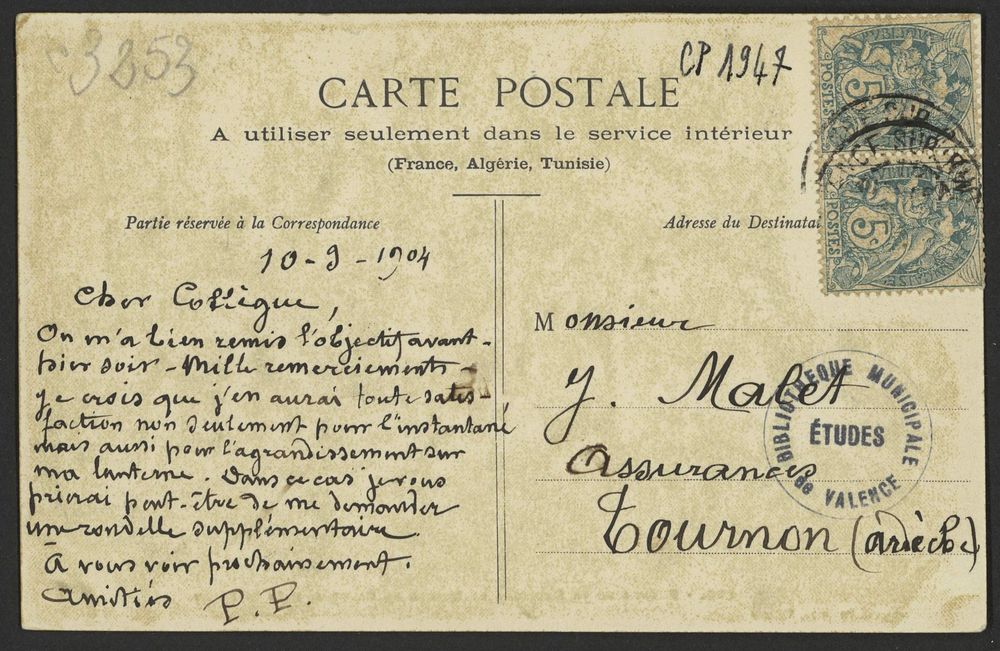 3253
CP 1947
CARTE POSTALE
A utiliser seulement dans le service intérieur
(France, Algérie, Tunisie)
POSTES
5c
POSTES
5c
Partie réservée à la Correspondance
10-9-1904
Cher Collègue,
On m'a bien remis l'objectif avant-
hier soir - Mille remerciements -
Je crois que j'en aurai toute satis
faction non seulement pour l'instantané
mais aussi pour l'agrandissement sur
ma lanterne. Dans ce cas je vous
prierai peut-être de me demander
une rondelle supplémentaire.
A vous voir prochainement.
Amitiés P.P.
Adresse du Destinatai
Monsieur
J. Malet
Assurances
Tournon (Ardèche)
BIBLIOTHEQUE MUNICIPALE
ÉTUDES
de VALENCE